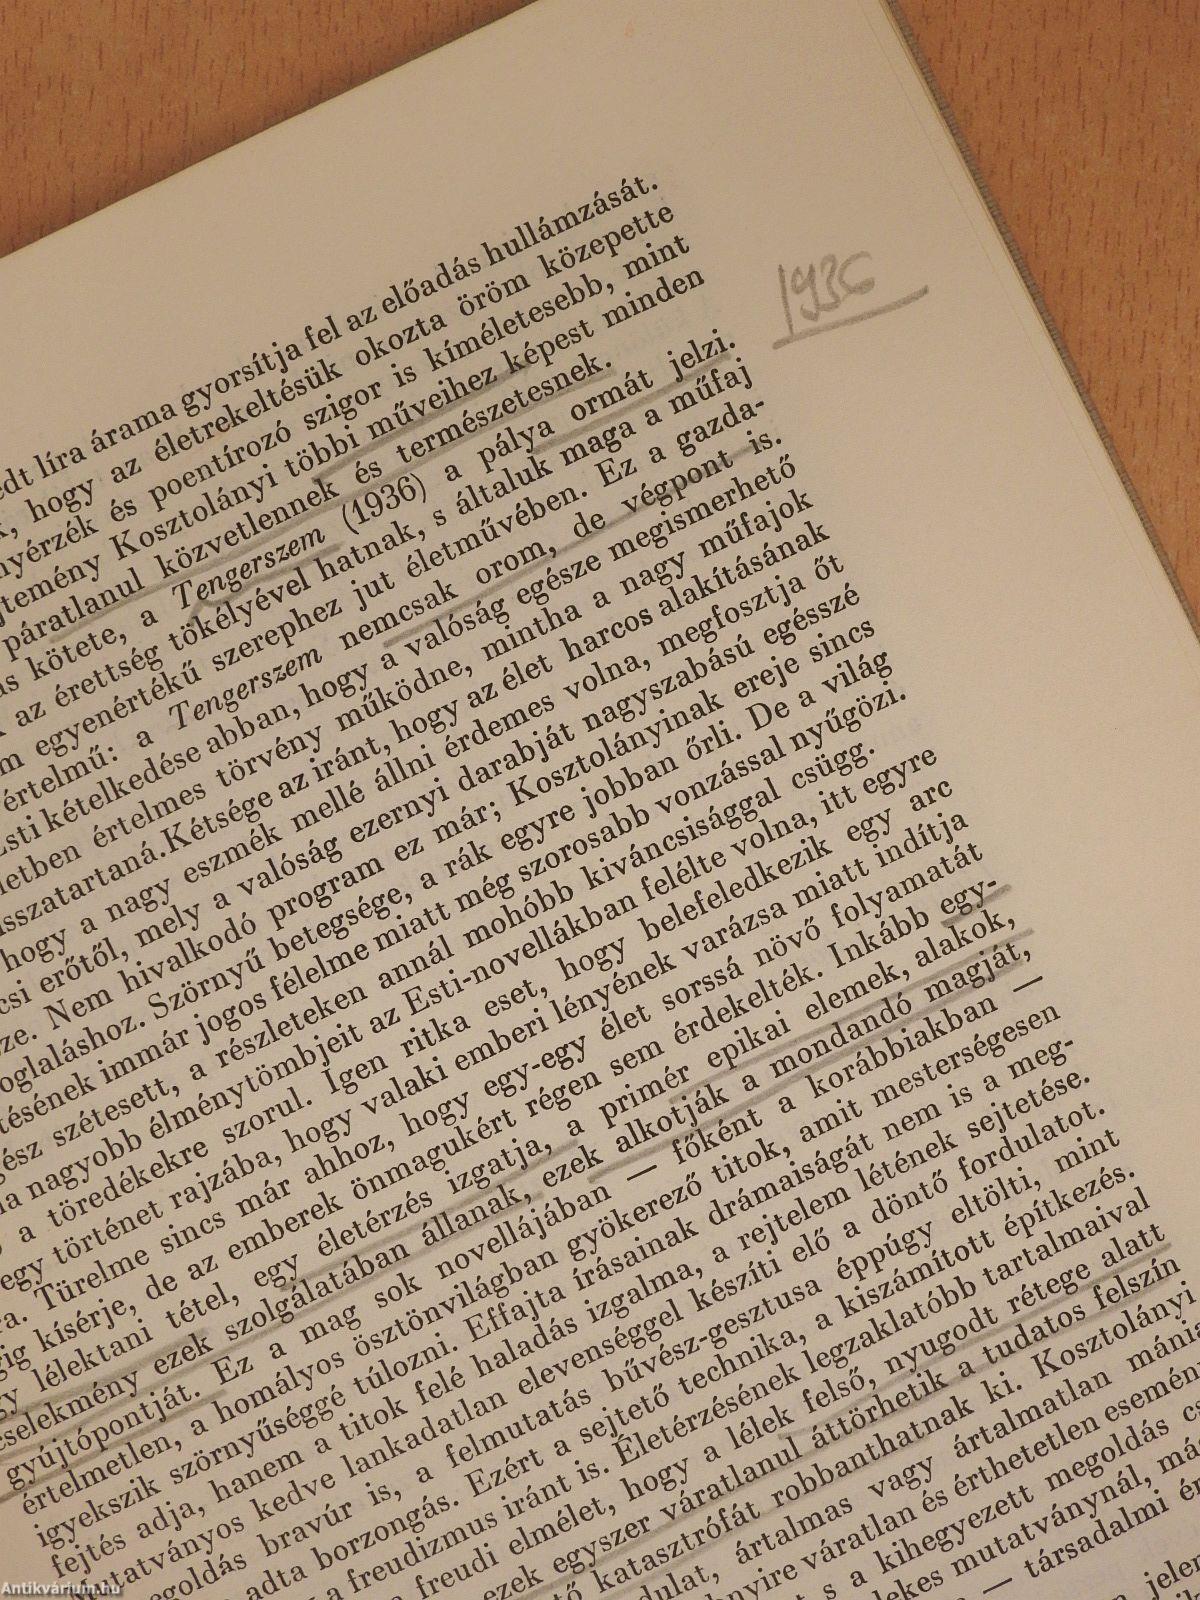 líra árama gyorsítja fel az előadás hullámzását.
hogy az életrekeltésük okozta öröm közepette
és poentírozó szigor is kíméletesebb, mint
Kosztolányi többi műveihez képest minden
páratlanul közvetlennek és természetesnek.
kötete, a Tengerszem (1936) a pálya ormát jelzi.
az érettség tökélyével hatnak, s általuk maga a műfaj
egyenértékű szerephez jut életművében. Ez a gazda-
értelmű: a Tengerszem nemcsak orom, de végpont is.
kételkedése abban, hogy a valóság egésze megismerhető
értelmes törvény működne, mintha a nagy műfajok
Kétsége az iránt, hogy az élet harcos alakításának
hogy a nagy eszmék mellé állni érdemes volna, megfosztja őt
erőtől, mely a valóság ezernyi darabját nagyszabású egésszé
Nem hivalkodó program ez már; Kosztolányinak ereje sincs
Szörnyű betegsége, a rák egyre jobban őrli. De a világ
immár jogos félelme miatt még szorosabb vonzással nyűgözi.
szétesett, a részleteken annál mohóbb kiváncsisággal csügg.
nagyobb élménytömbjeit az Esti-novellákban felélte volna, itt egyre
a töredékekre szorul. Igen ritka eset, hogy belefeledkezik egy arc
egy történet rajzába, hogy valaki emberi lényének varázsa miatt indítja
Türelme sincs már ahhoz, hogy egy-egy élet sorssá növő folyamatát
kísérje, de az emberek önmagukért régen sem érdekelték. Inkább egy-
lélektani tétel, egy életérzés izgatja, a primér epikai elemek, alakok,
ezek szolgálatában állanak, ezek alkotják a mondandó magját,
gyújtópontját. Ez a mag sok novellájában — főként a korábbiakban —
értelmetlen, a homályos ösztönvilágban gyökerező titok, amit mesterségesen
igyekszik szörnyűséggé túlozni. Effajta írásainak drámaiságát nem is a meg-
fejtés adja, hanem a titok felé haladás izgalma, a rejtelem létének sejtetése.
kedve lankadatlan elevenséggel készíti elő a döntő fordulatot.
bravúr is, a felmutatás bűvész-gesztusa éppúgy eltölti, mint
adta borzongás. Ezért a sejtető technika, a kiszámított építkezés.
a freudizmus iránt is. Életérzésének legzaklatóbb tartalmaival
freudi elmélet, hogy a lélek felső, nyugodt rétege alatt
ezek egyszer váratlanul áttörhetik a tudatos felszín
katasztrófát robbanthatnak ki. Kosztolányi
ártalmas vagy ártalmatlan
váratlan és érthetetlen
s a kihegyezett megoldás
mutatványnál,
— társadalmi
1936
Antikvárium.hu